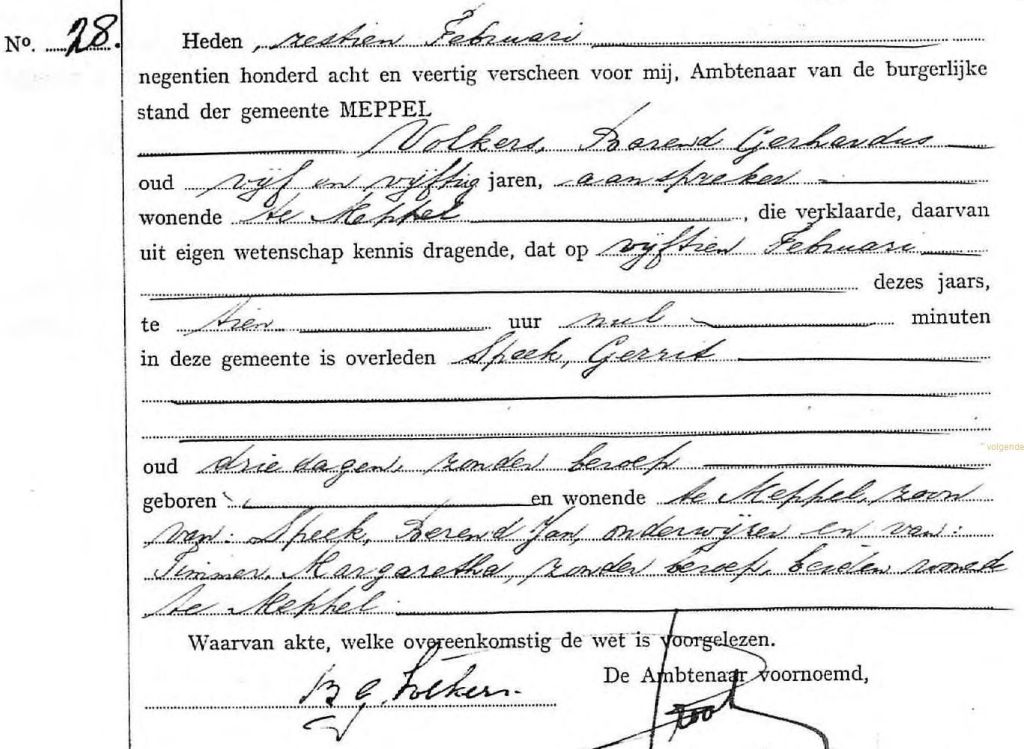 No. 28.
Heden, zestien Februari
negentien honderd acht en veertig verscheen voor mij, Ambtenaar van de burgerlijke
stand der gemeente MEPPEL
Volkers, Barend Gerhardus
oud vijf en vijftig jaren, aanspreker
wonende te Meppel, die verklaarde, daarvan
uit eigen wetenschap kennis dragende, dat op vijftien Februari
dezes jaars,
te tien uur nul minuten
in deze gemeente is overleden Speek, Gerrit
volgende
oud drie dagen, zonder beroep
geboren en wonende te Meppel, zoon
van: Speek, Berend Jan, onderwijzer en van:
Timmer, Margaretha, zonder beroep, beiden wonend
te Meppel.
Waarvan akte, welke overeenkomstig de wet is voorgelezen.
De Ambtenaar voornoemd,
B G Volkers.